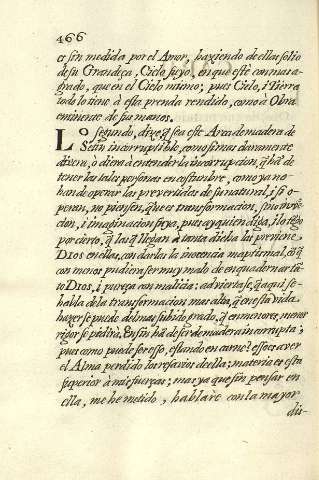 466
es sin medida por el Amor, haziendo de ellas solio
de su Grandeça, Cielo suyo, en que esté con mas a-
grado, que en el Cielo mismo; pues Cielo, i Tierra
todo lo tiene à esta prenda rendido, como à Obra
eminente de sus manos.
Lo segundo, dixe q̃ sea este Arca de madera de
Setin incorruptible, como si mas claramente
dixera, ò diera à entender la incorrupcion, q̃ hà de
tener las tales personas en costumbre, como ya no
han de operar las perversidades de su natural, i si o-
peran, no piensen, que es transformacion, sino
cion, i imaginacion suya, pues ay quien diga, i lo tẽgo
por cierto, q̃ las q̃ llegan à tanta dicha las previene
DIOS en ellas, con darlas la inocencia maptismal,
con menos pudiera ser muy malo de enquadernar tã-
to Dios, i pureça con malicia: adviertase, q̃ aqui se
habla de la transformacion mas alta, q̃ en esta vida
hazer se puede del mas subido grado, q̃ en menores, menor
rigor se pedirà. En sin hà de ser de madera incorrupta;
pues como puede ser esso, estando en carne? esso es aver
el Alma perdido los resavios de ella; materia es esta
superior à mis fuerças; mas ya que sin pensar en
ella, me he metido, hablarè con la mayor
dis-